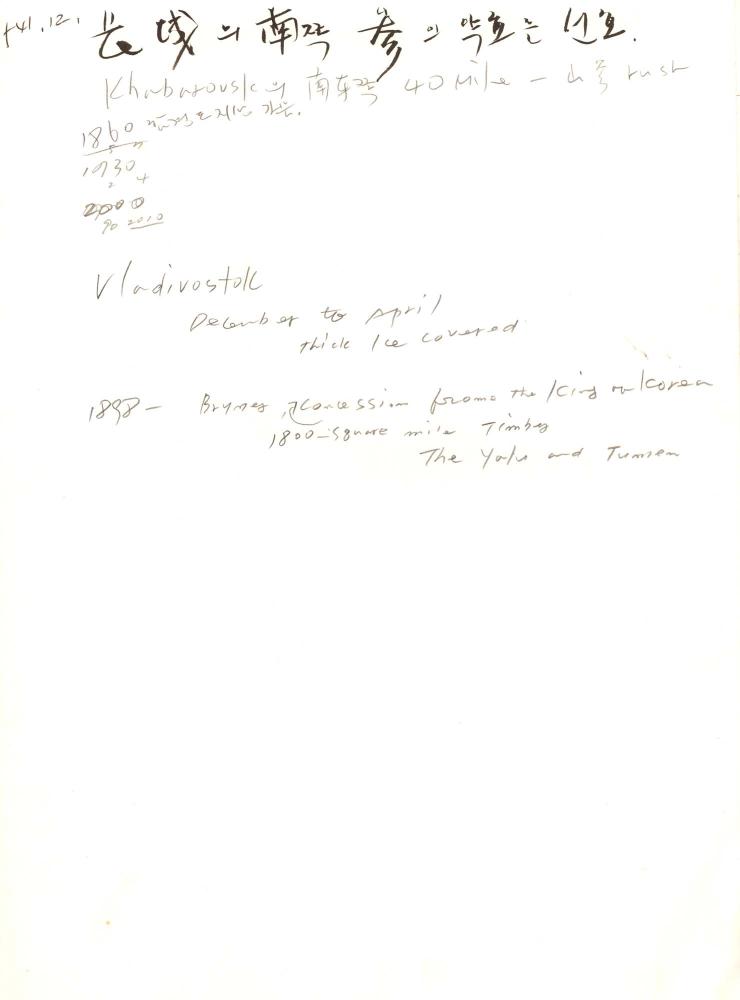 長城의 南쪽 蔘의 약효는 선호.
Khabarovsk의 南東쪽 40 Mile - 山蔘 rush
1860
1930
2 4
2000
90 2010
Vladivostok
December to April
thick Ice covered
1898 - Bryner, concession from the King on Korea
1800-square mile Timber
The Yalu and Tumen